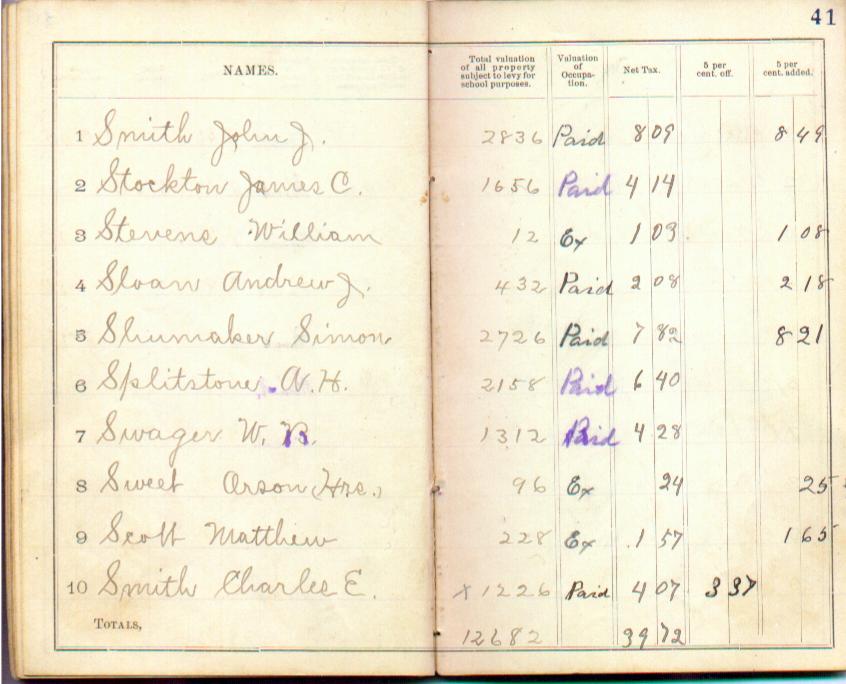 41
NAMES. Total valuation of all property subject to levy for school purposes. Valuation of Occupation. Net Tax. 5 per cent. off. 5 per cent. added.
1 Smith John J. 2836 Paid 8 09 8 49
2 Stockton James C. 1656 Paid 4 14
3 Stevens William 12 Ex 1 03 1 08
4 Sloan Andrew J. 432 Paid 2 08 2 18
5 Shumaker Simon 2726 Paid 7 82 8 21
6 Splitstone A. H. 2158 Paid 6 40
7 Swager W. B. 1312 Paid 4 28
8 Sweet Orson (Hrs.) 96 Ex 24 25
9 Scott Matthew 228 Ex 1 57 1 65
10 Smith Charles E. x 1226 Paid 4 07 3 37
TOTALS, 12682 39 72